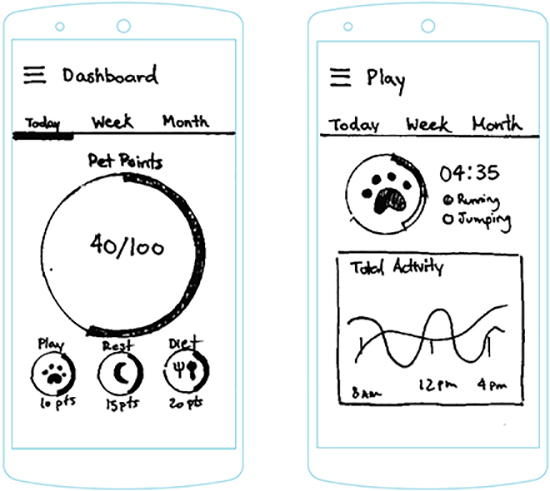 Dashboard
Today Week Month
Pet Points
40/100
Play Rest Diet
10 pts 15pts 20 pts
Play
Today Week Month
04:35
Running
Jumping
Total Activity
8 am 12 pm 4 pm